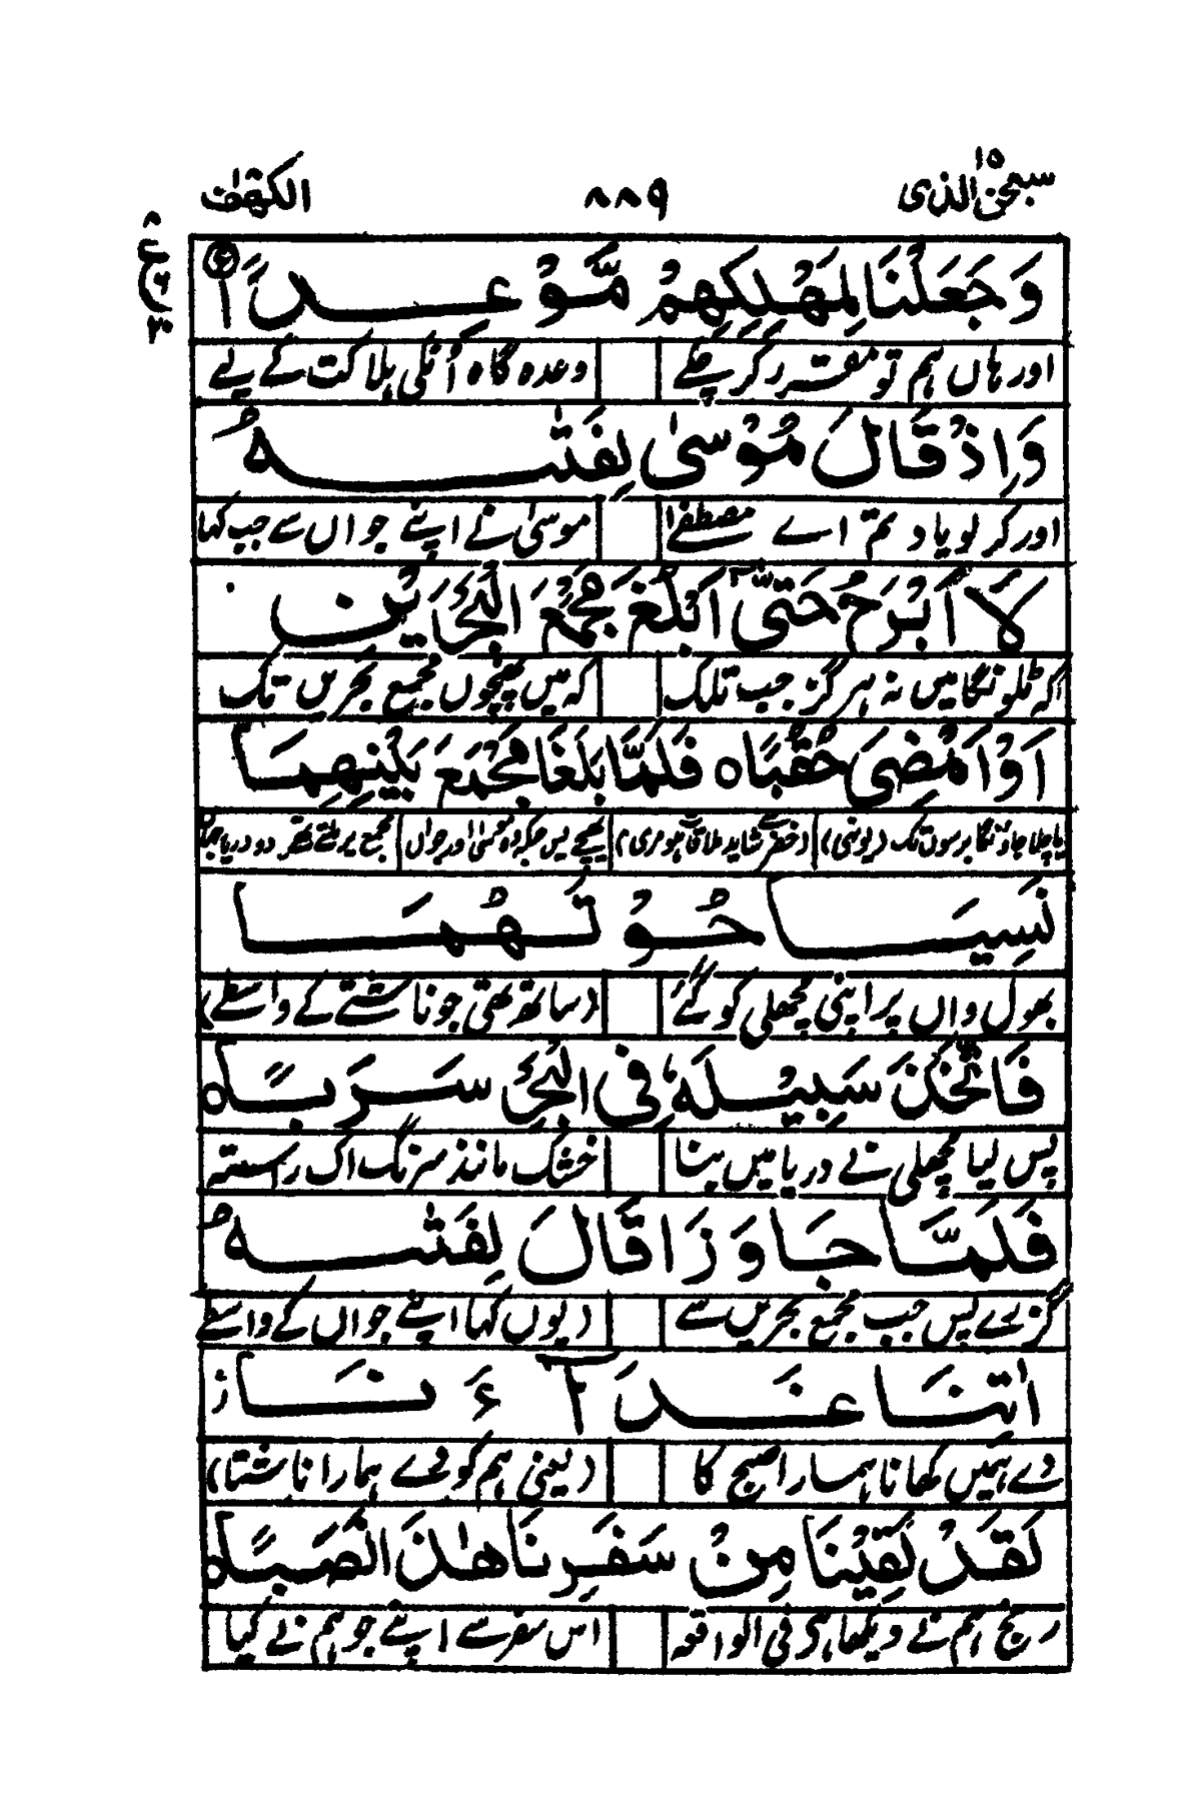 سبحٰن الذی ١٥ ٨٨٩ الکهف
وَجَعَلْنَا لِمَهْلِکِهِمْ مَّوْعِدًا
اور ہاں ہم تو مقرر کر چکے وعدہ گاہ اُنکی ہلاکت کے لیے
وَاِذْ قَالَ مُوْسٰی لِفَتٰىهُ
اور کر لو یاد تم اے مصطفےٰ موسیٰ نے اپنے جواں سے جب کہا
لَاۤ اَبْرَحُ حَتّٰۤی اَبْلُغَ مَجْمَعَ الْبَحْرَیْنِ
کہ ٹلونگا میں نہ ہرگز جب تلک کہ میں پہنچوں مجمع بحریں تک
اَوْ اَمْضِیَ حُقُبًا ٥ فَلَمَّا بَلَغَا مَجْمَعَ بَیْنِهِمَا
یا چلا جاؤنگا برسوں تک (یونہی) (خضر سے شاید ملاقات ہو مری) پہنچے پس جبکہ وہ موسیٰ اور جواں مجمع پر ملتے تھے دو دریا جہاں
نَسِیَا حُوْتَهُمَا
بھول واں پر اپنی مچھلی کو گئے (ساتھ تھی جو ناشتے کے واسطے)
فَاتَّخَذَ سَبِیْلَهٗ فِی الْبَحْرِ سَرَبًا ٥
پس لیا مچھلی نے دریا میں بنا خشک مانند سرنگ اک راستہ
فَلَمَّا جَاوَزَا قَالَ لِفَتٰىهُ
گزرے پس جب مجمع بحریں سے (یوں کہا اپنے جواں کے واسطے
اٰتِنَا غَدَآءَنَا ز
دے ہمیں کھانا ہمارا صبح کا (یعنی ہم کو دے ہمارا ناشتا)
لَقَدْ لَقِیْنَا مِنْ سَفَرِنَا هٰذَا نَصَبًا ٥
رنج ہم نے دیکھا ہے فی الواقعہ اس سفر سے اپنے جو ہم نے کیا